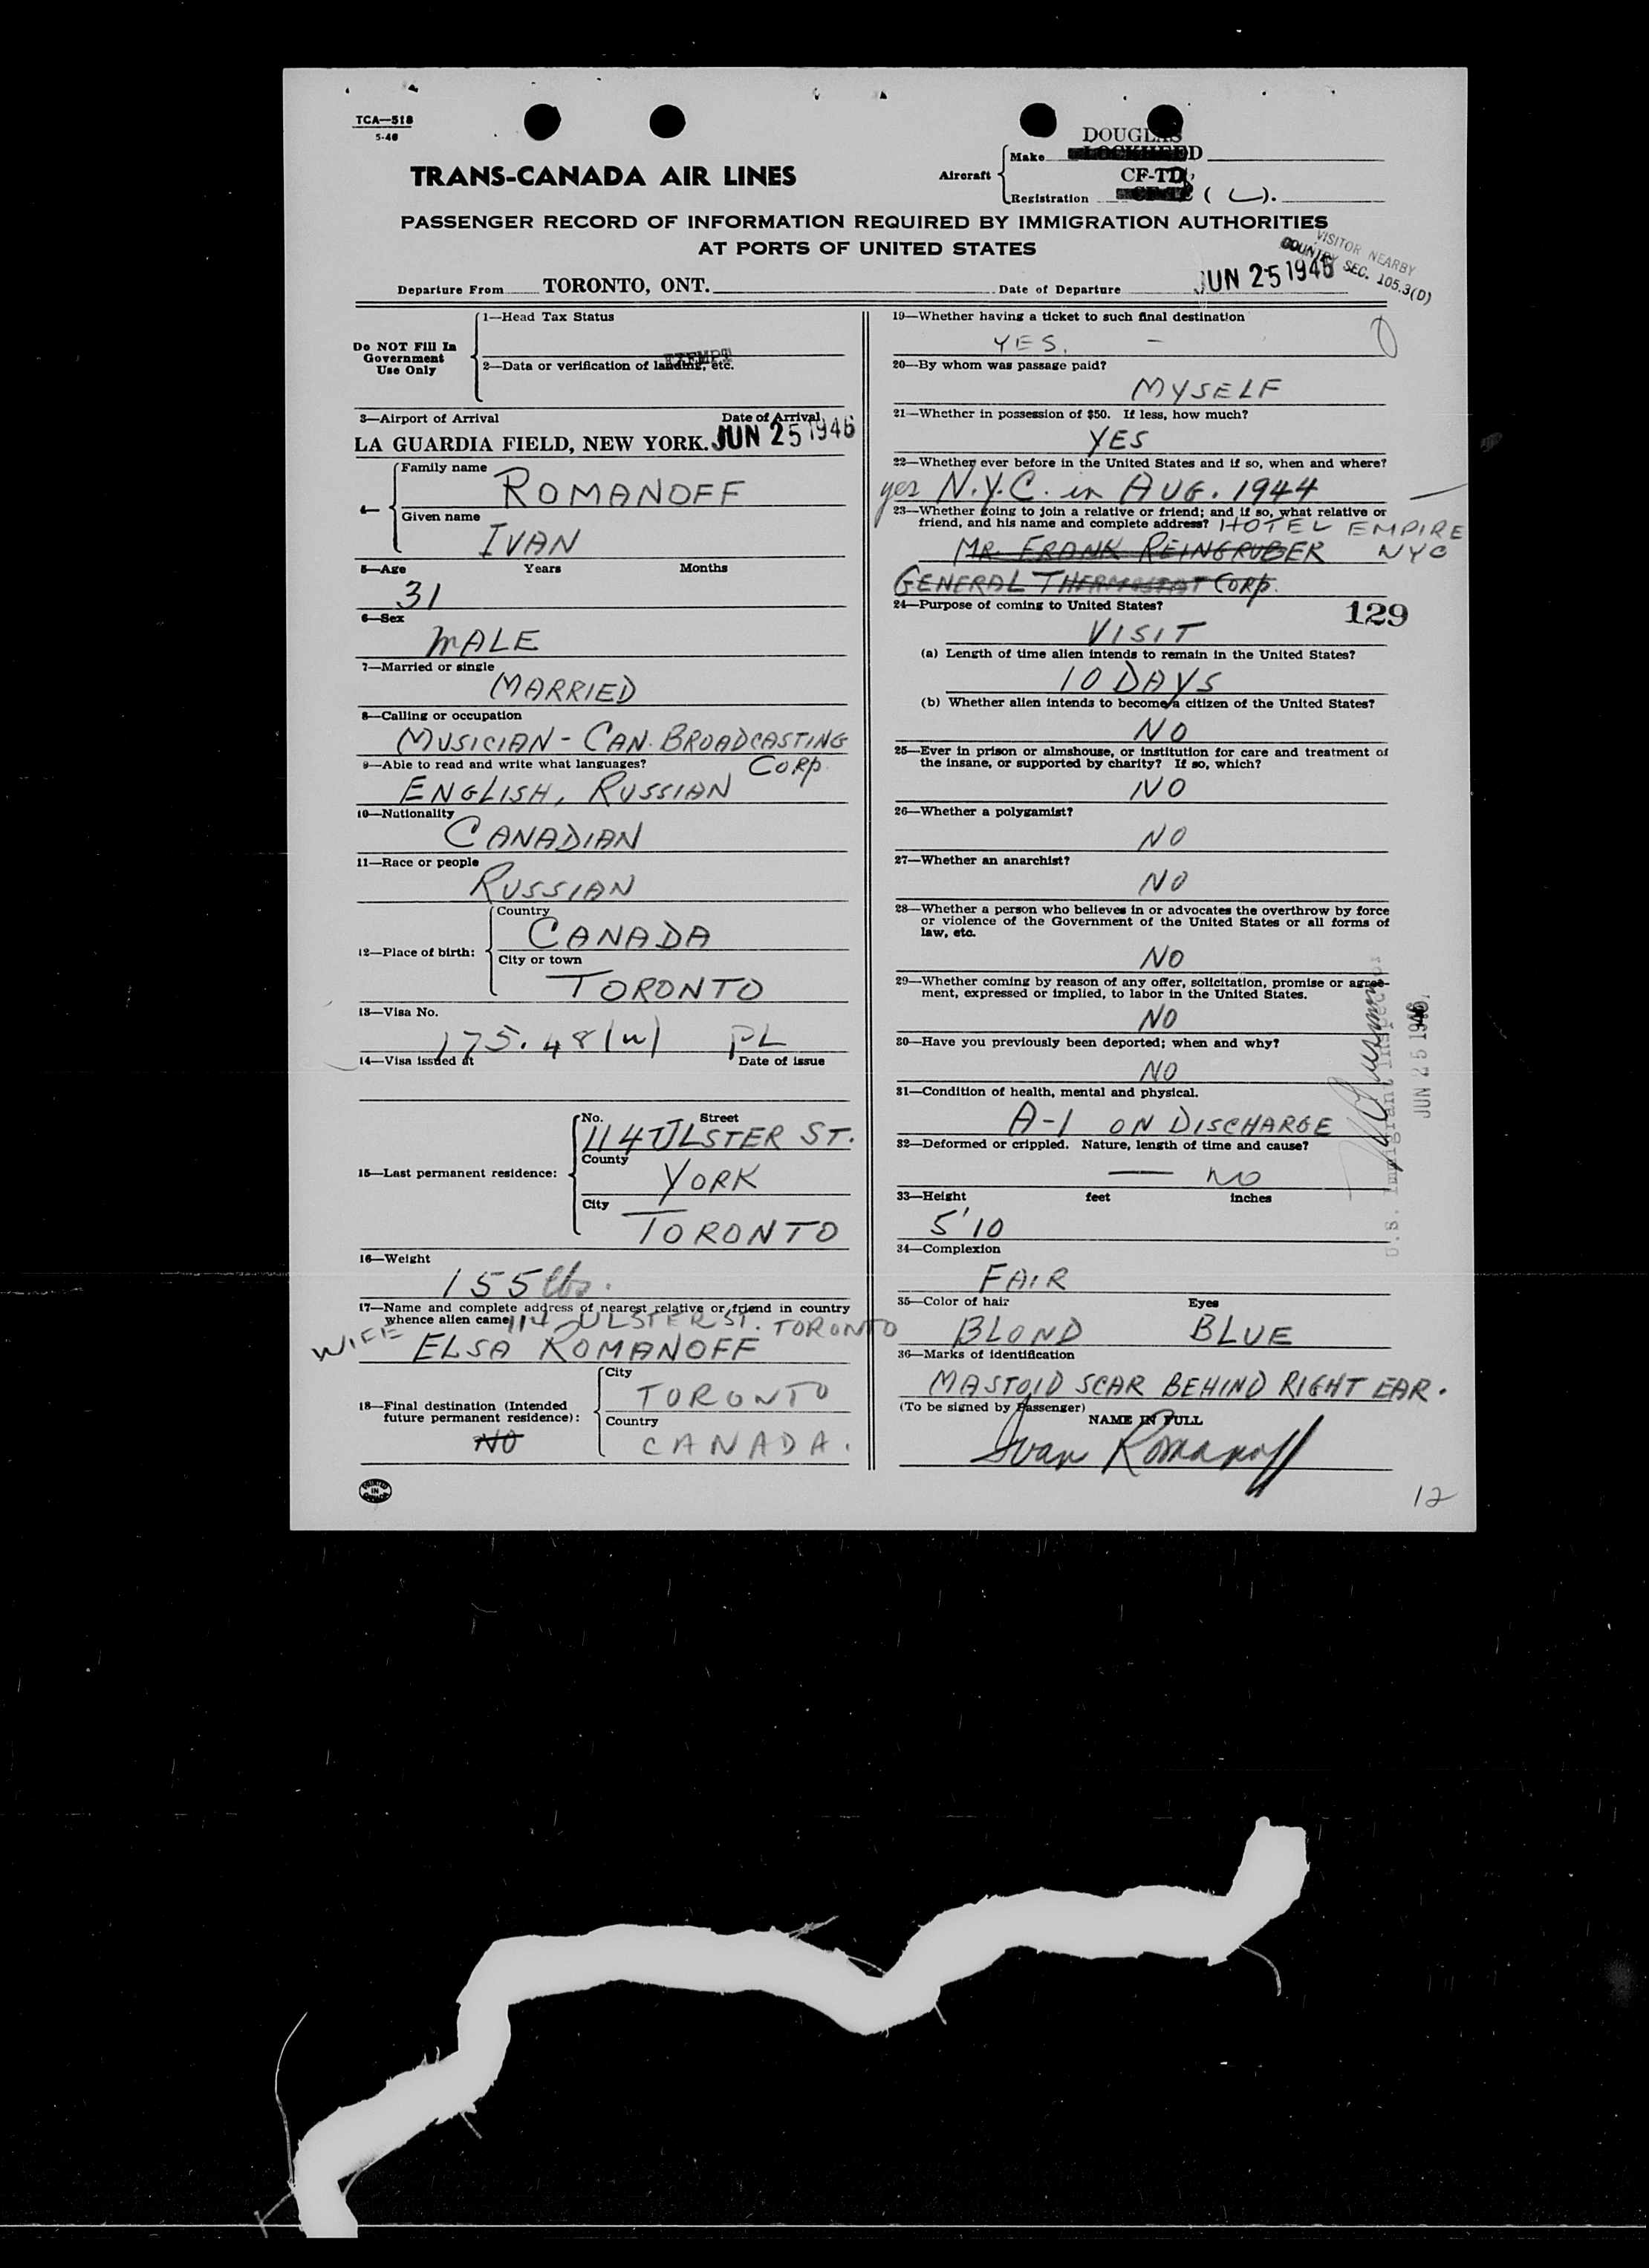 TCA—518
5-46
TRANS-CANADA AIR LINES
Aircraft
Make
DOUGLAS
LOCKHEED
CF-TD
Registration
( L ).
PASSENGER RECORD OF INFORMATION REQUIRED BY IMMIGRATION AUTHORITIES
AT PORTS OF UNITED STATES
VISITOR NEARBY
COUNTRY SEC. 105.3(D)
Departure From TORONTO, ONT.
Date of Departure JUN 25 1946
Do NOT Fill In
Government
Use Only
1—Head Tax Status
EXEMPT
2—Data or verification of landing, etc.
3—Airport of Arrival Date of Arrival
LA GUARDIA FIELD, NEW YORK. JUN 25 1946
4—
Family name
ROMANOFF
Given name
IVAN
5—Age Years Months
31
6—Sex
MALE
7—Married or single
MARRIED
8—Calling or occupation
MUSICIAN - CAN. BROADCASTING
CORP.
9—Able to read and write what languages?
ENGLISH, RUSSIAN
10—Nationality
CANADIAN
11—Race or people
RUSSIAN
12—Place of birth:
Country
CANADA
City or town
TORONTO
13—Visa No.
175.48(w) PL
14—Visa issued at Date of issue
15—Last permanent residence:
No. Street
114 ULSTER ST.
County
YORK
City
TORONTO
16—Weight
155 lbs.
17—Name and complete address of nearest relative or friend in country
whence alien came.
114 ULSTER ST. TORONTO
WIFE ELSA ROMANOFF
18—Final destination (Intended
future permanent residence):
NO
City
TORONTO
Country
CANADA.
PRINTED
IN
CANADA
19—Whether having a ticket to such final destination
YES. —
20—By whom was passage paid?
MYSELF
21—Whether in possession of $50. If less, how much?
YES
22—Whether ever before in the United States and if so, when and where?
yes N.Y.C. in AUG. 1944
23—Whether going to join a relative or friend; and if so, what relative or
friend, and his name and complete address? HOTEL EMPIRE
MR. FRANK REINGRUBER NYC
GENERAL THERMOSTAT CORP.
24—Purpose of coming to United States?
129
VISIT
(a) Length of time alien intends to remain in the United States?
10 DAYS
(b) Whether alien intends to become a citizen of the United States?
NO
25—Ever in prison or almshouse, or institution for care and treatment of
the insane, or supported by charity? If so, which?
NO
26—Whether a polygamist?
NO
27—Whether an anarchist?
NO
28—Whether a person who believes in or advocates the overthrow by force
or violence of the Government of the United States or all forms of
law, etc.
NO
29—Whether coming by reason of any offer, solicitation, promise or agree-
ment, expressed or implied, to labor in the United States.
NO
30—Have you previously been deported; when and why?
NO
31—Condition of health, mental and physical.
A-1 ON DISCHARGE
32—Deformed or crippled. Nature, length of time and cause?
— NO
33—Height feet inches
5'10
34—Complexion
FAIR
35—Color of hair Eyes
BLOND BLUE
36—Marks of identification
MASTOID SCAR BEHIND RIGHT EAR.
(To be signed by Passenger)
NAME IN FULL
Ivan Romanoff
U.S. Immigrant Inspector
JUN 25 1946
12